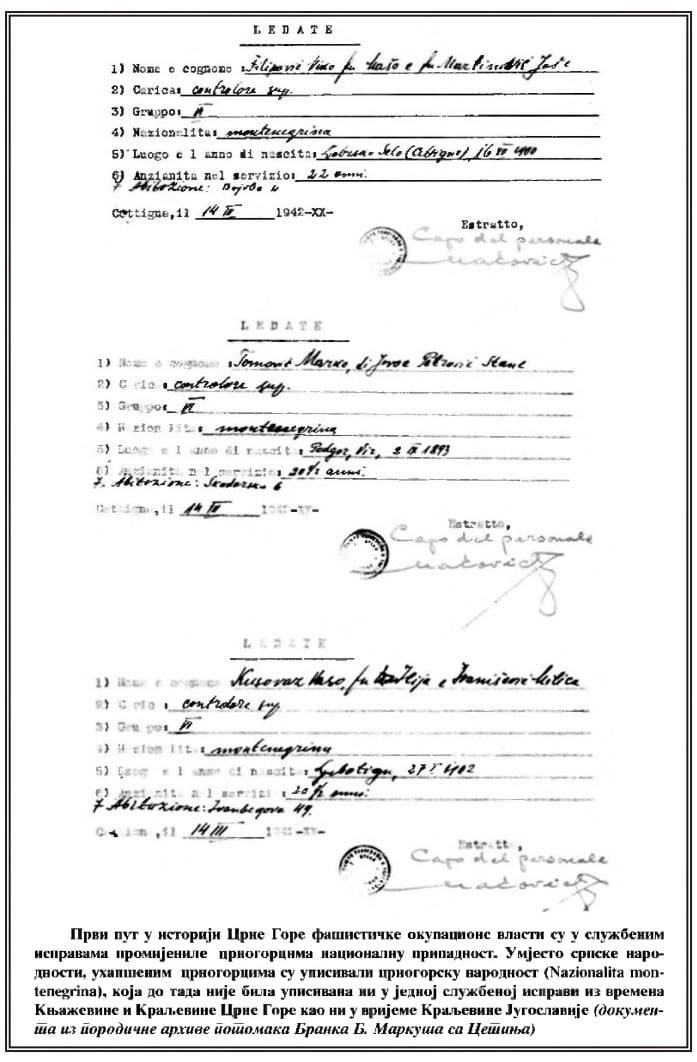 LEDATE
1) Nome e cognome: Filipović Vido fu Mašo e fu Martinović Joše
2) Carica: controlore sup.
3) Gruppo: VI
4) Nazionalita: montenegrina
5) Luogo e l anno di nascita: Selo (Cetigne), 16 1900
6) Anzianita nel servizio: 22 anni.
7 Abitozione: Bajova 4
Cettigne, il 14 III 1942-XX-
Estratto,
Capo del personale
LEDATE
1) Nome e cognome: Tomović Marko, di Jovo e Petrović Stane
2) C ric : controlore sup.
3) Gruppo: VI
4) N zion lita: montenegrina
5) Luogo e l anno di nascita: Podgor, Vir, 2 IX 1893
6) Anzianita n l servizio: 20 1/2 anni.
7. Abitozione: Skadarska 6
Cettigne, il 14 III 1942-XX-
Estratto,
Capo del personale
LEDATE
1) Nome e cognome: Kusovaz Vaso, fu Ilija e Ivanišević Milica
2) C ric : controlore sup
3) Gru po: VI
4) N zion lita: montenegrina
5) Luog e l anno di nascita: Ljubotign, 27 I 1902
6) Anzi nita n l servizi : 20 1/2 anni.
7 Abitozione: Ivanbegova 49.
il 14 III 1942-XX-
Estratto,
Capo del personale
Први пут у историји Црне Горе фашистичке окупационе власти су у службеним
исправама промијениле црногорцима националну припадност. Умјесто српске наро-
дности, ухапшеним црногорцима су уписивали црногорску народност (Nazionalita mon-
tenegrina), која до тада није била уписивана ни у једној службеној исправи из времена
Књажевине и Краљевине Црне Горе као ни у вријеме Краљевине Југославије (докумен-
та из породичне архиве потомака Бранка Б. Маркуша са Цетиња)